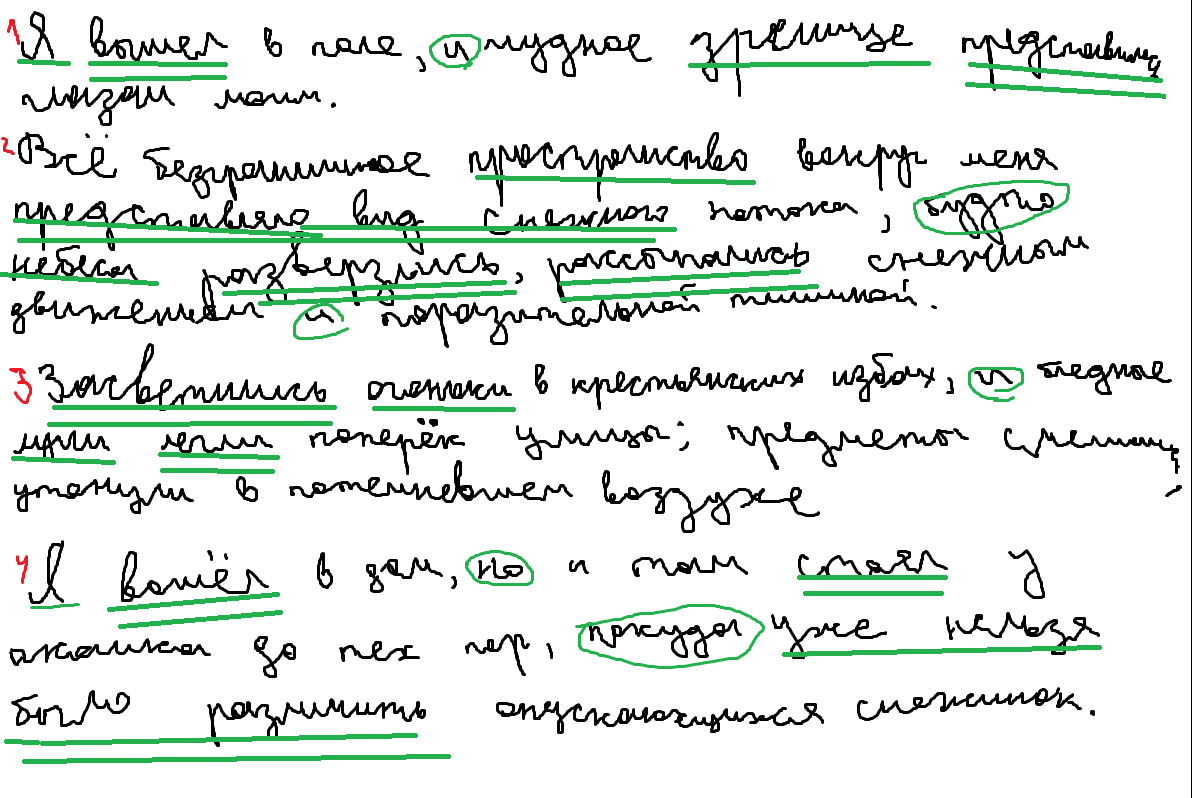 1 Я вышел в поле, и чудное зрелище представилось
глазам моим.
2 Всё безграничное пространство вокруг меня
представляло вид снежного потока, будто
небеса разверзлись, рассыпались снежным
движением и поразительной тишиной.
3 Засветились огоньки в крестьянских избах, и бледные
лучи легли поперёк улицы; предметы смешались,
утонули в потемневшем воздухе
4 Я вошёл в дом, но и там стоял у
окошка до тех пор, покуда уже нельзя
было различить опускающихся снежинок.